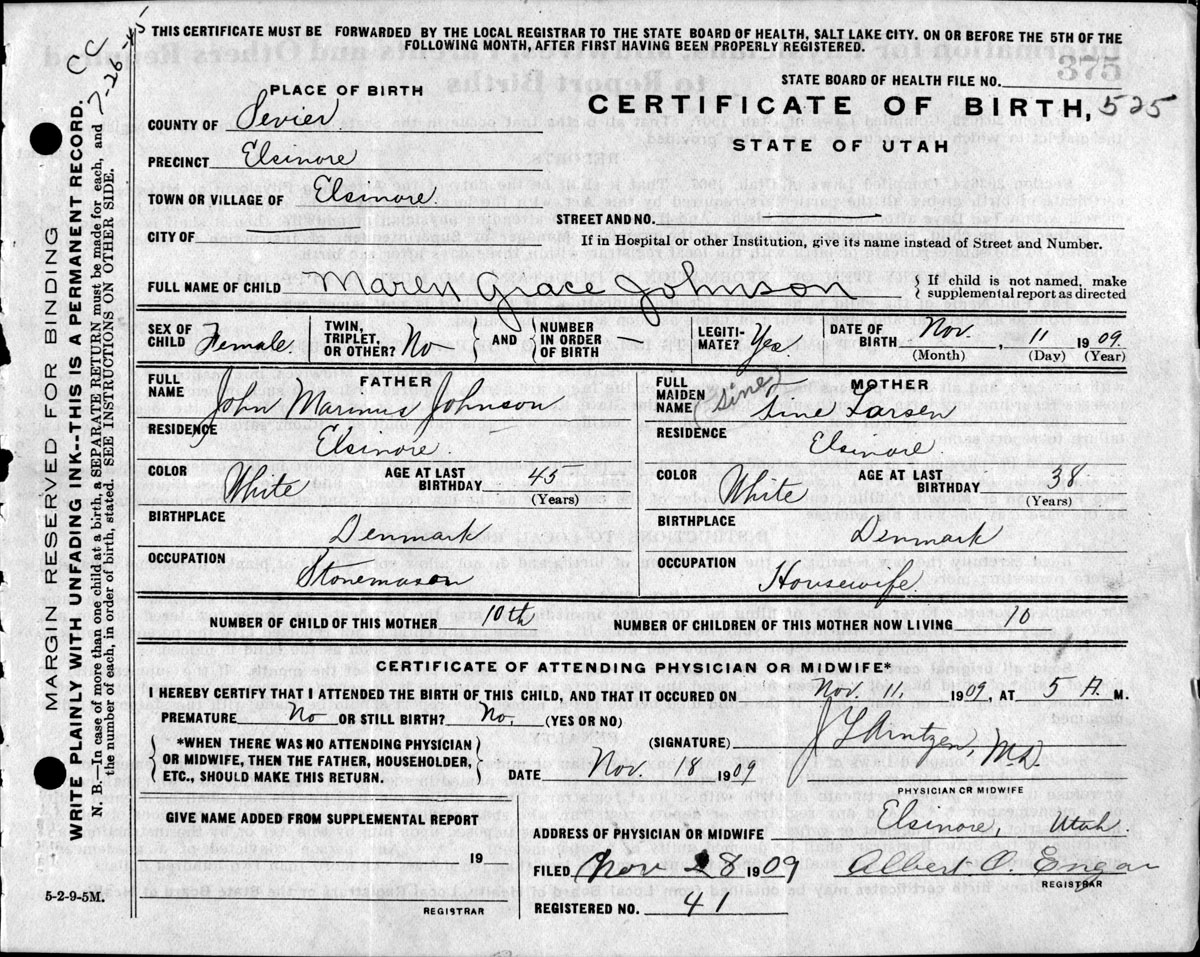 THIS CERTIFICATE MUST BE FORWARDED BY THE LOCAL REGISTRAR TO THE STATE BOARD OF HEALTH, SALT LAKE CITY. ON OR BEFORE THE 5TH OF THE
FOLLOWING MONTH, AFTER FIRST HAVING BEEN PROPERLY REGISTERED.
375
STATE BOARD OF HEALTH FILE NO.
PLACE OF BIRTH
CERTIFICATE OF BIRTH, 525
STATE OF UTAH
COUNTY OF Sevier
PRECINCT Elsinore
TOWN OR VILLAGE OF Elsinore.
STREET AND NO.
CITY OF
If in Hospital or other Institution, give its name instead of Street and Number.
FULL NAME OF CHILD Maren Grace Johnson
If child is not named, make
supplemental report as directed
SEX OF CHILD Female. TWIN, TRIPLET, OR OTHER? No AND NUMBER IN ORDER OF BIRTH LEGITI-MATE? Yes. DATE OF BIRTH Nov. , 11 1909.
(Month) (Day) (Year)
FATHER
FULL NAME John Marinus Johnson
RESIDENCE Elsinore.
COLOR White AGE AT LAST BIRTHDAY 45
(Years)
BIRTHPLACE Denmark
OCCUPATION Stonemason
MOTHER
FULL MAIDEN NAME (Sine) Sine Larsen
RESIDENCE Elsinore.
COLOR White AGE AT LAST BIRTHDAY 38
(Years)
BIRTHPLACE Denmark
OCCUPATION Housewife.
NUMBER OF CHILD OF THIS MOTHER 10th NUMBER OF CHILDREN OF THIS MOTHER NOW LIVING 10
CERTIFICATE OF ATTENDING PHYSICIAN OR MIDWIFE*
I HEREBY CERTIFY THAT I ATTENDED THE BIRTH OF THIS CHILD, AND THAT IT OCCURED ON Nov. 11, 1909, AT 5 A. M.
PREMATURE No OR STILL BIRTH? No. (YES OR NO)
*WHEN THERE WAS NO ATTENDING PHYSICIAN
OR MIDWIFE, THEN THE FATHER, HOUSEHOLDER,
ETC., SHOULD MAKE THIS RETURN.
(SIGNATURE) M.D.
DATE Nov. 18 1909
PHYSICIAN OR MIDWIFE
GIVE NAME ADDED FROM SUPPLEMENTAL REPORT
19
REGISTRAR
ADDRESS OF PHYSICIAN OR MIDWIFE Elsinore, Utah.
FILED Nov 28 1909 Albert O. Engar
REGISTRAR
REGISTERED NO. 41
5-2-9-5M.
MARGIN RESERVED FOR BINDING
WRITE PLAINLY WITH UNFADING INK--THIS IS A PERMANENT RECORD.
N. B.—In case of more than one child at a birth, a SEPARATE RETURN must be made for each, and
the number of each, in order of birth, stated. SEE INSTRUCTIONS ON OTHER SIDE.
7-26